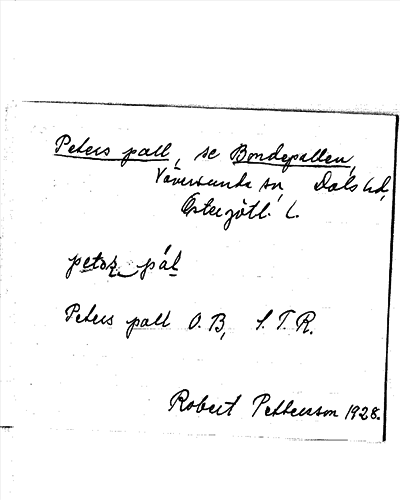 Peters pall, se Bondepallen,
Väversunda sn, Dals hd,
Östergötl. L.
petəʂ pál
Peters pall O.B, S.T.R.
Robert Petterson 1928.